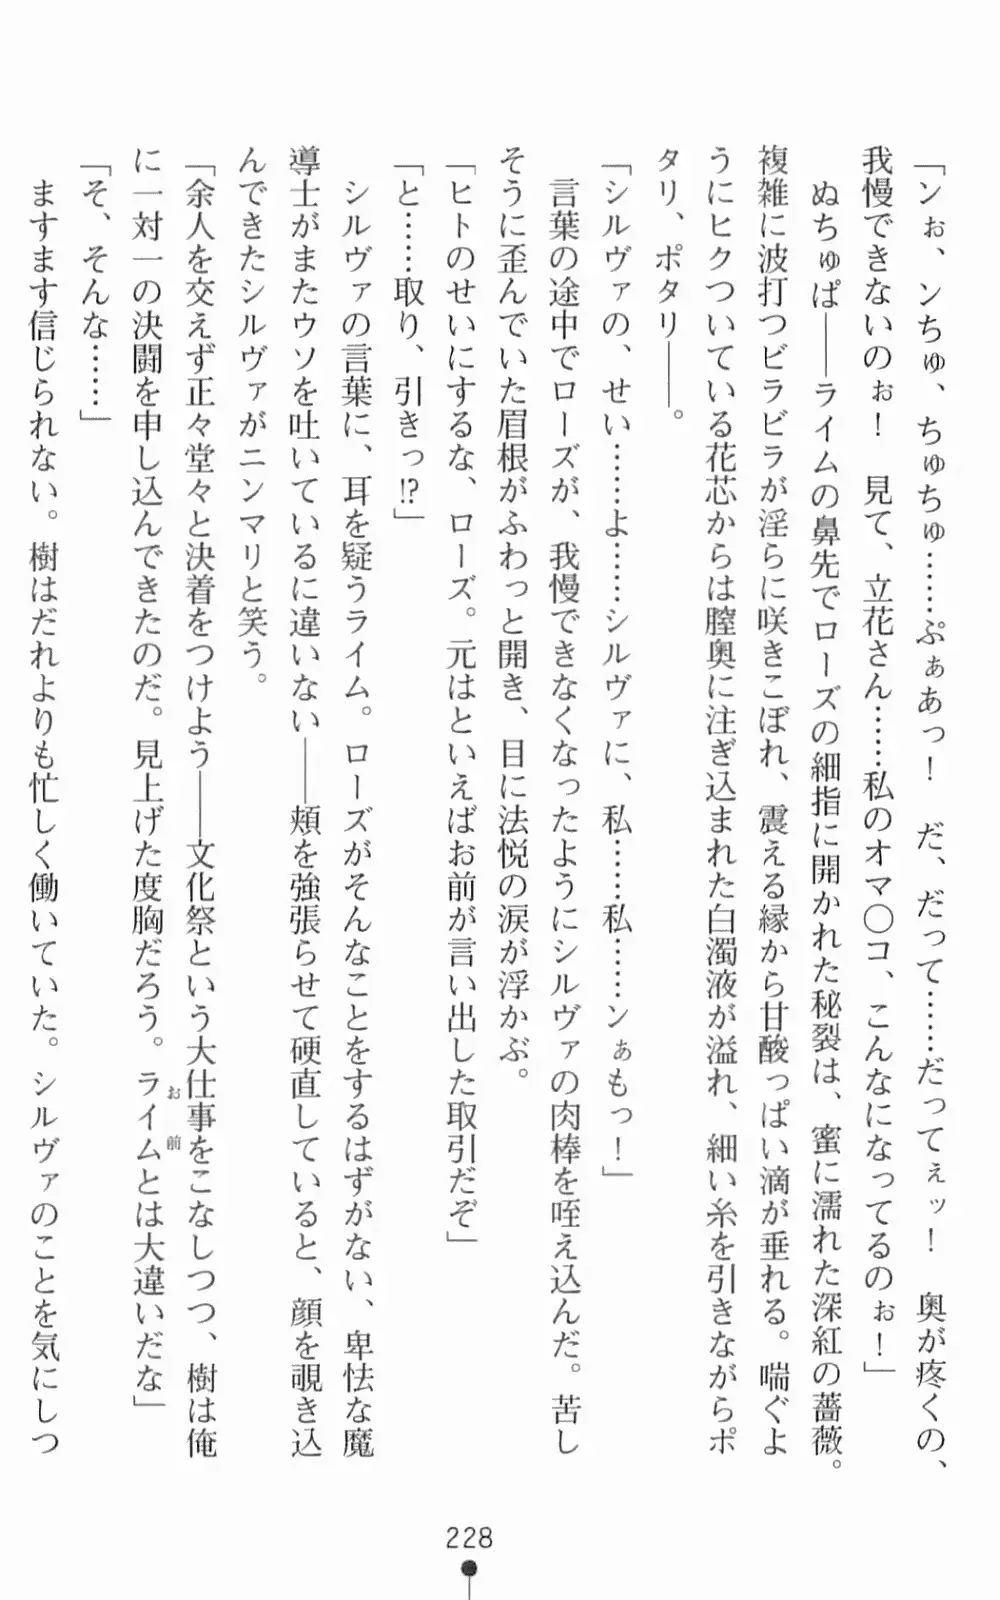 「ンぉ、ンちゅ、ちゅちゅ……ぷぁあっ！　だ、だって……だってぇッ！　奥が疼くの、
我慢できないのぉ！　見て、立花さん……私のオマ〇コ、こんなになってるのぉ！」
　ぬちゅぱ――ライムの鼻先でローズの細指に開かれた秘裂は、蜜に濡れた深紅の薔薇。
複雑に波打つビラビラが淫らに咲きこぼれ、震える縁から甘酸っぱい滴が垂れる。喘ぐよ
うにヒクついている花芯からは膣奥に注ぎ込まれた白濁液が溢れ、細い糸を引きながらポ
タリ、ポタリ――。
「シルヴァの、せい……よ……シルヴァに、私……私……ンぁもっ！」
　言葉の途中でローズが、我慢できなくなったようにシルヴァの肉棒を咥え込んだ。苦し
そうに歪んでいた眉根がふわっと開き、目に法悦の涙が浮かぶ。
「ヒトのせいにするな、ローズ。元はといえばお前が言い出した取引だぞ」
「と……取り、引きっ!?」
　シルヴァの言葉に、耳を疑うライム。ローズがそんなことをするはずがない、卑怯な魔
導士がまたウソを吐いているに違いない――頬を強張らせて硬直していると、顔を覗き込
んできたシルヴァがニンマリと笑う。
「余人を交えず正々堂々と決着をつけよう――文化祭という大仕事をこなしつつ、樹は俺
に一対一の決闘を申し込んできたのだ。見上げた度胸だろう。ライム（お前）とは大違いだな」
「そ、そんな……」
　ますます信じられない。樹はだれよりも忙しく働いていた。シルヴァのことを気にしつ
228